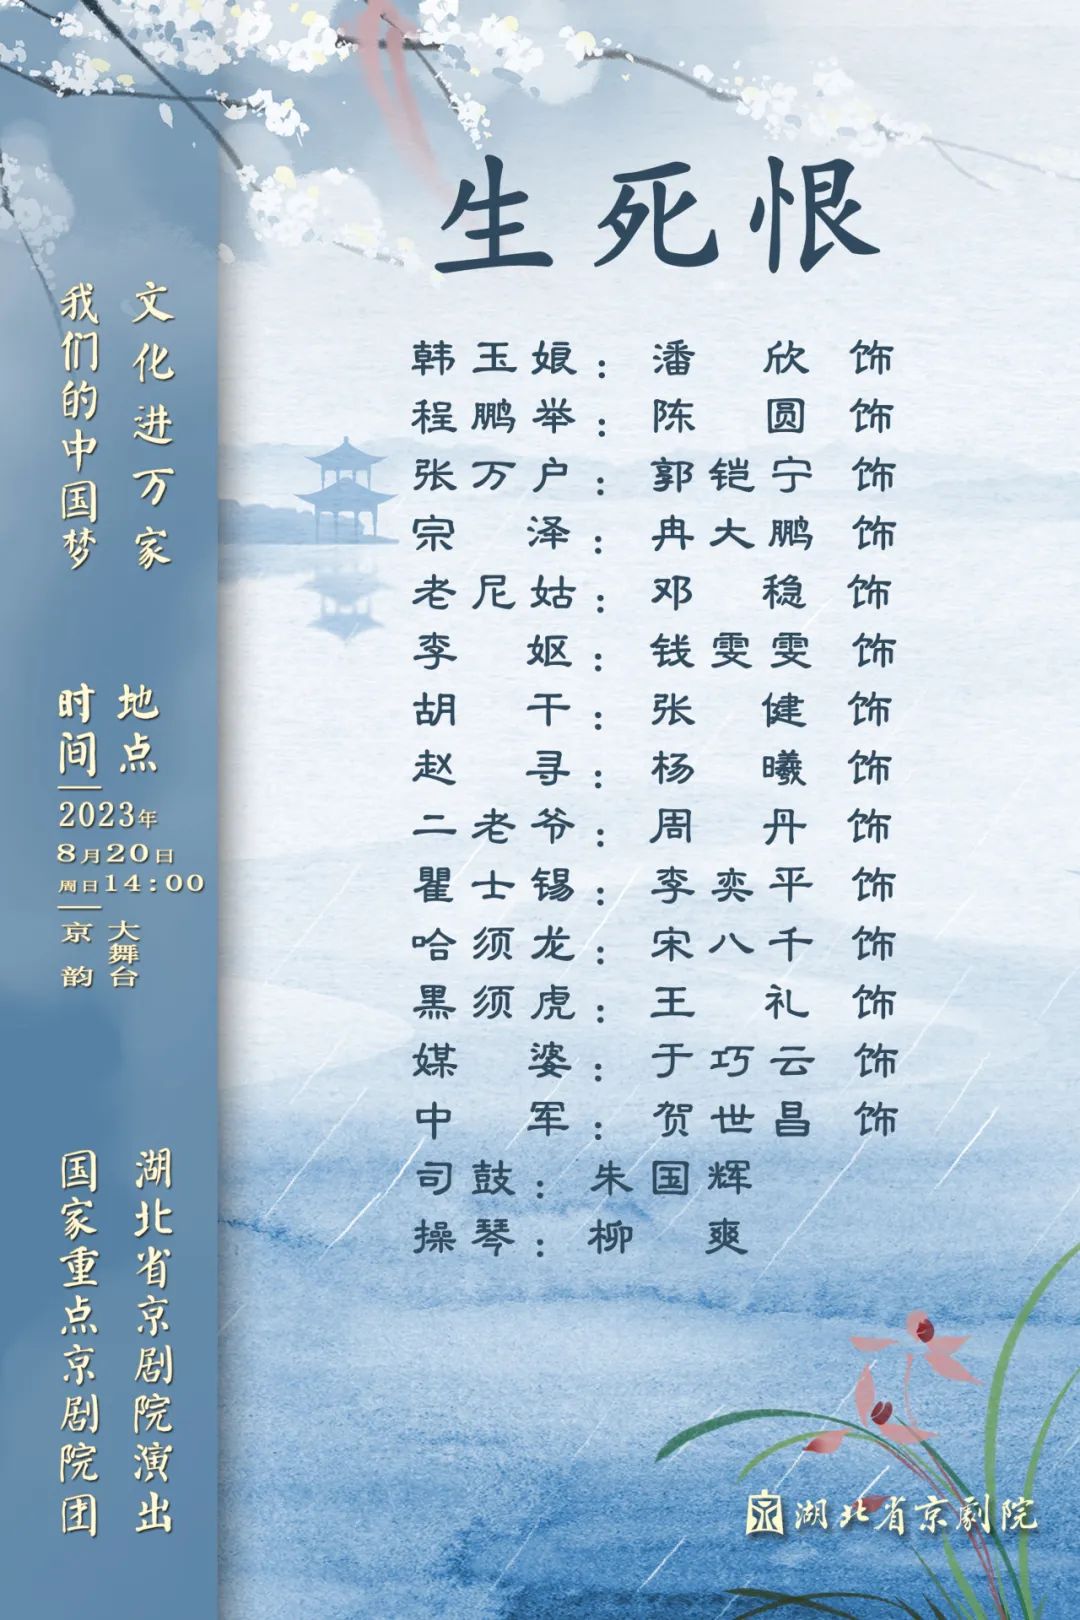 生死恨
韩玉娘：潘欣 饰
程鹏举：陈圆 饰
张万户：郭铠宁 饰
宗泽：冉大鹏 饰
老尼姑：邓稳 饰
李妪：钱雯雯 饰
胡干：张健 饰
赵寻：杨曦 饰
二老爷：周丹 饰
瞿士锡：李奕平 饰
哈须龙：宋八千 饰
黑须虎：王礼 饰
媒婆：于巧云 饰
中军：贺世昌 饰
司鼓：朱国辉
操琴：柳爽
我们的中国梦
文化进万家
时间
地点
2023年
8月20日
周日14:00
京韵
大舞台
国家重点京剧院团
湖北省京剧院演出
京 湖北省京劇院